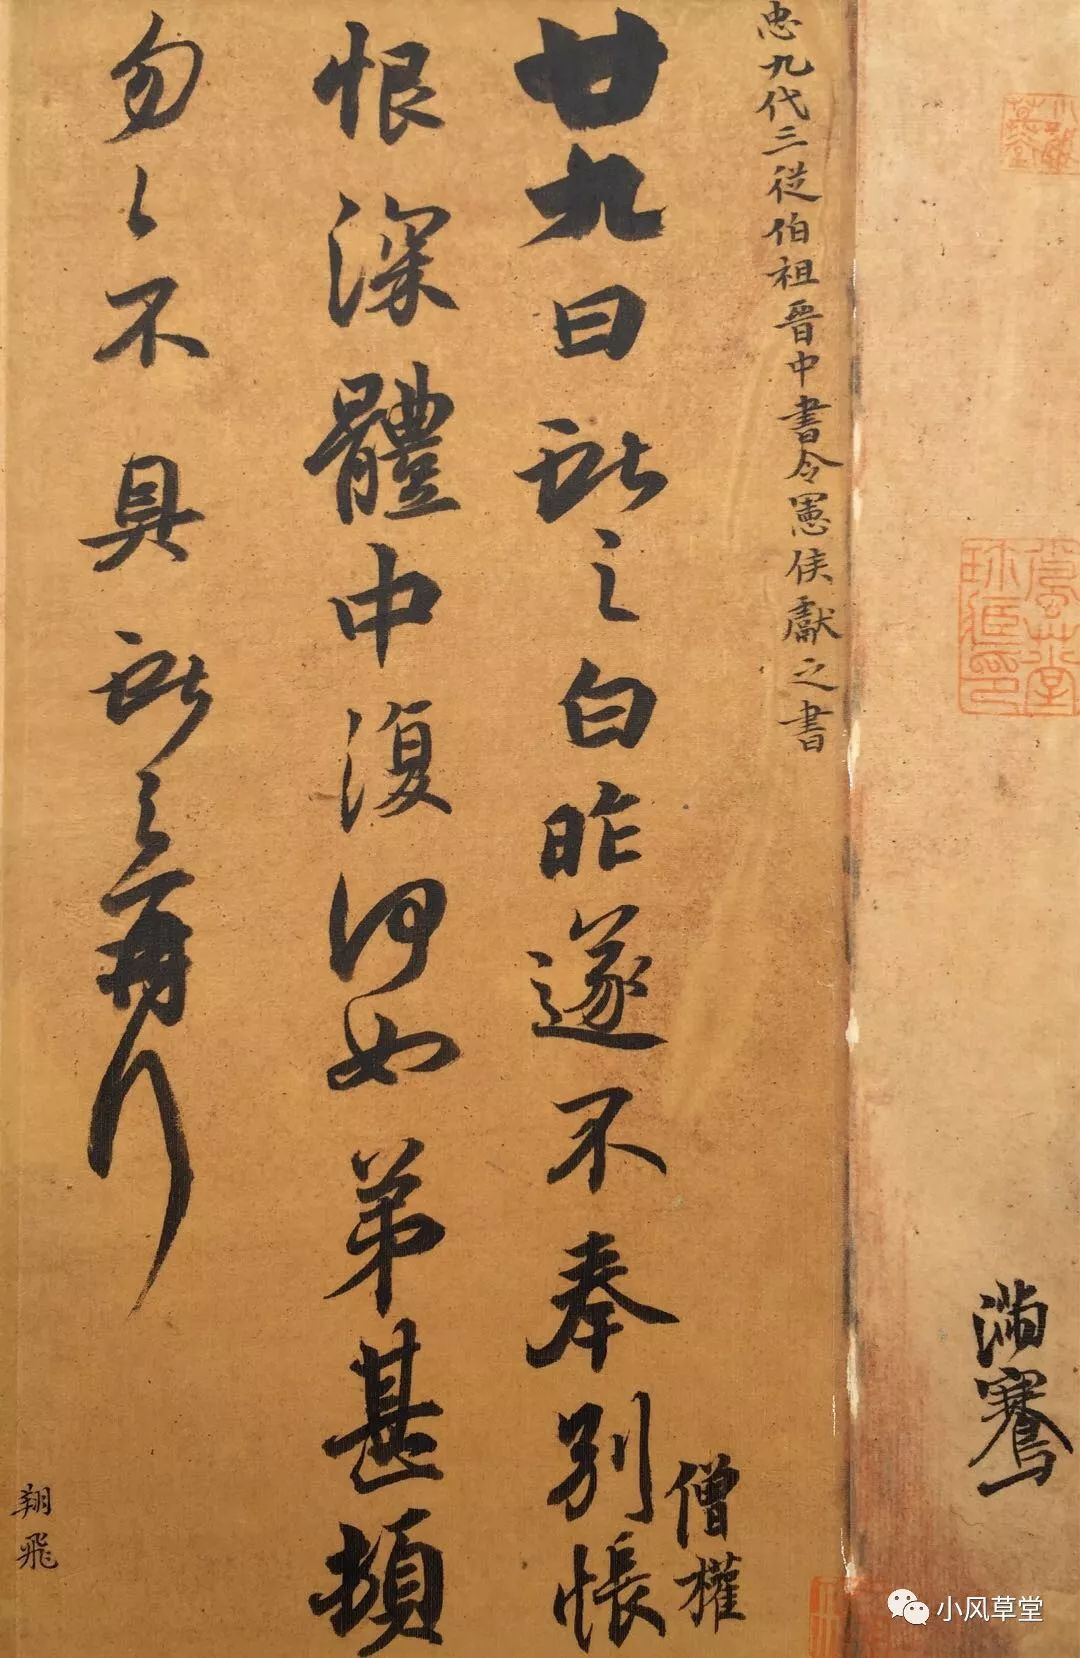 滿騫
忠九代三從伯祖晉中書令憲侯獻之書
僧權
廿九日獻之白昨遂不奉別悵
恨深體中復何如弟甚頓
勿〻不具獻之再拜
翔飛
小风草堂